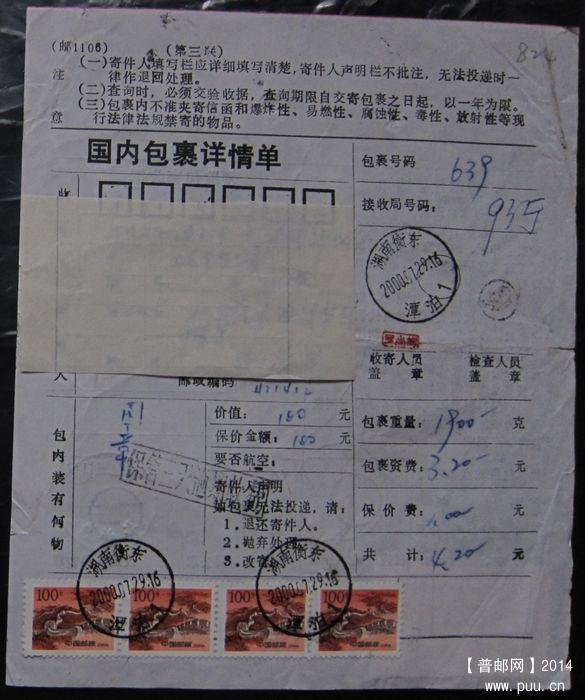 (邮1106) (第三联) 824
注意
(一)寄件人填写栏应详细填写清楚,寄件人声明栏不批注,无法投递时一
律作退回处理。
(二)查询时,必须交验收据,查询期限自交寄包裹之日起,以一年为限。
(三)包裹内不准夹寄信函和爆炸性、易燃性、腐蚀性、毒性、放射性等现
行法律法规禁寄的物品。
国内包裹详情单
包裹号码 639
接收局号码: 935
收
湖南衡东
2000.07.29.16
潭泊 1
人
邮政编码 421412
收寄人员
盖 章
检查人员
盖 章
包内装有何物
价值: 100 元
保价金额: 100 元
要否航空:
寄件人声明
如包裹无法投递,请:
1.退还寄件人。
2.抛弃处理。
3.改寄
包裹重量: 1900 克
包裹资费: 3.20 元
保 价 费: 1.00 元
共 计: 4.20 元
湖南衡东
2000.07.29.16
潭泊 1
湖南衡东
2000.07.29.16
潭泊 1
100分 中国邮政 CHINA
100分 中国邮政 CHINA
100分 中国邮政 CHINA
100分 中国邮政 CHINA
【普邮网】2014
www.puu.cn